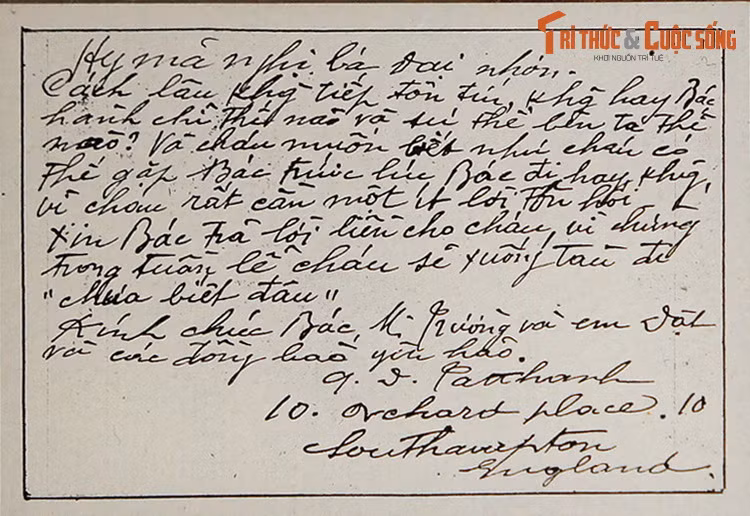 TRI THỨC & CUỘC SỐNG
KHƠI NGUỒN TRI TUỆ
Hy mã nghi bá đại nhơn.
Cách lâu khg tiếp tôn tín, khg hay Bác
hành chỉ thế nào và sự thể bên ta thế
nào? Và cháu muốn biết như cháu có
thể gặp Bác trước lúc Bác đi hay khg,
vì cháu rất cần một ít lời tôn hối.
Xin Bác trả lời liền cho cháu, vì chừng
trong tuần lễ cháu sẽ xuống tàu đi
"chưa biết đâu"
Kính chúc Bác, M. Trường và em Dật
và các đồng bào yên hảo.
Tatthanh
10. orchard place. 10
Southampton
England.